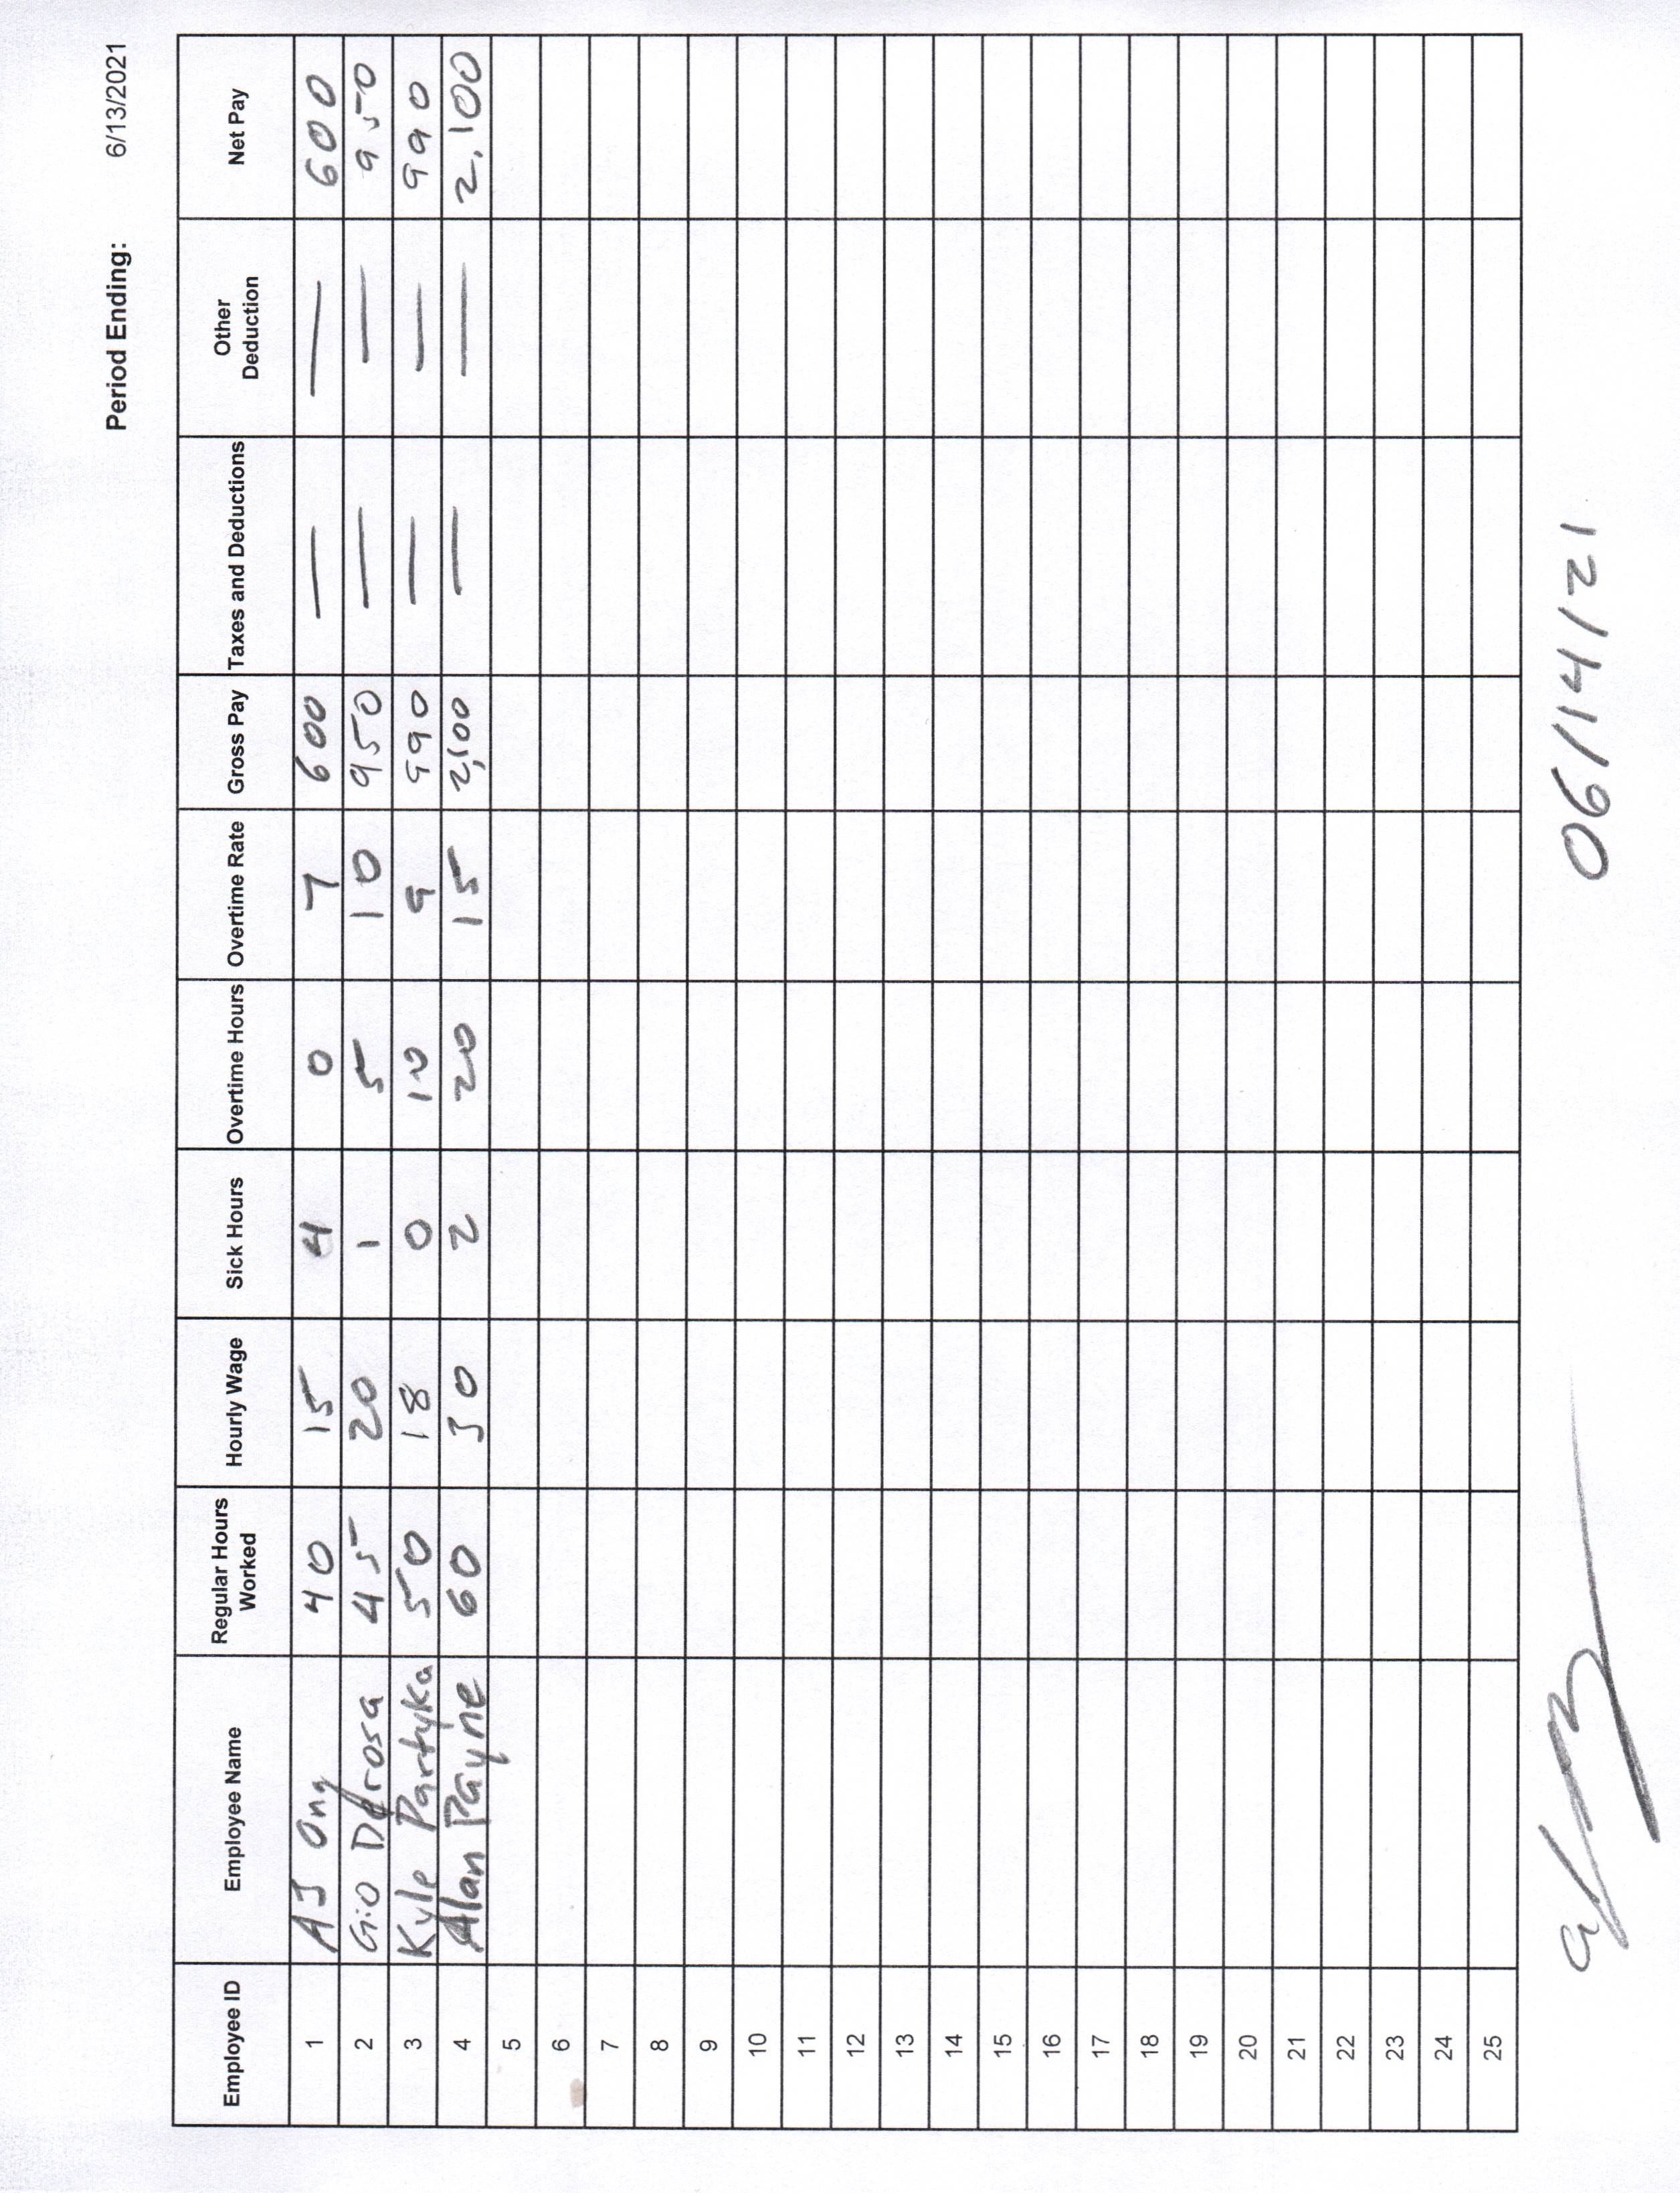 Period Ending: 6/13/2021
Employee ID Employee Name Regular Hours Worked Hourly Wage Sick Hours Overtime Hours Overtime Rate Gross Pay Taxes and Deductions Other Deduction Net Pay
1 AJ Ong 40 15 4 0 7 600 — — 600
2 Gio Derosa 45 20 1 5 10 950 — — 950
3 Kyle Partyka 50 18 0 10 9 990 — — 990
4 Alan Payne 60 30 2 20 15 2,100 — — 2,100
5
6
7
8
9
10
11
12
13
14
15
16
17
18
19
20
21
22
23
24
25
06/14/21